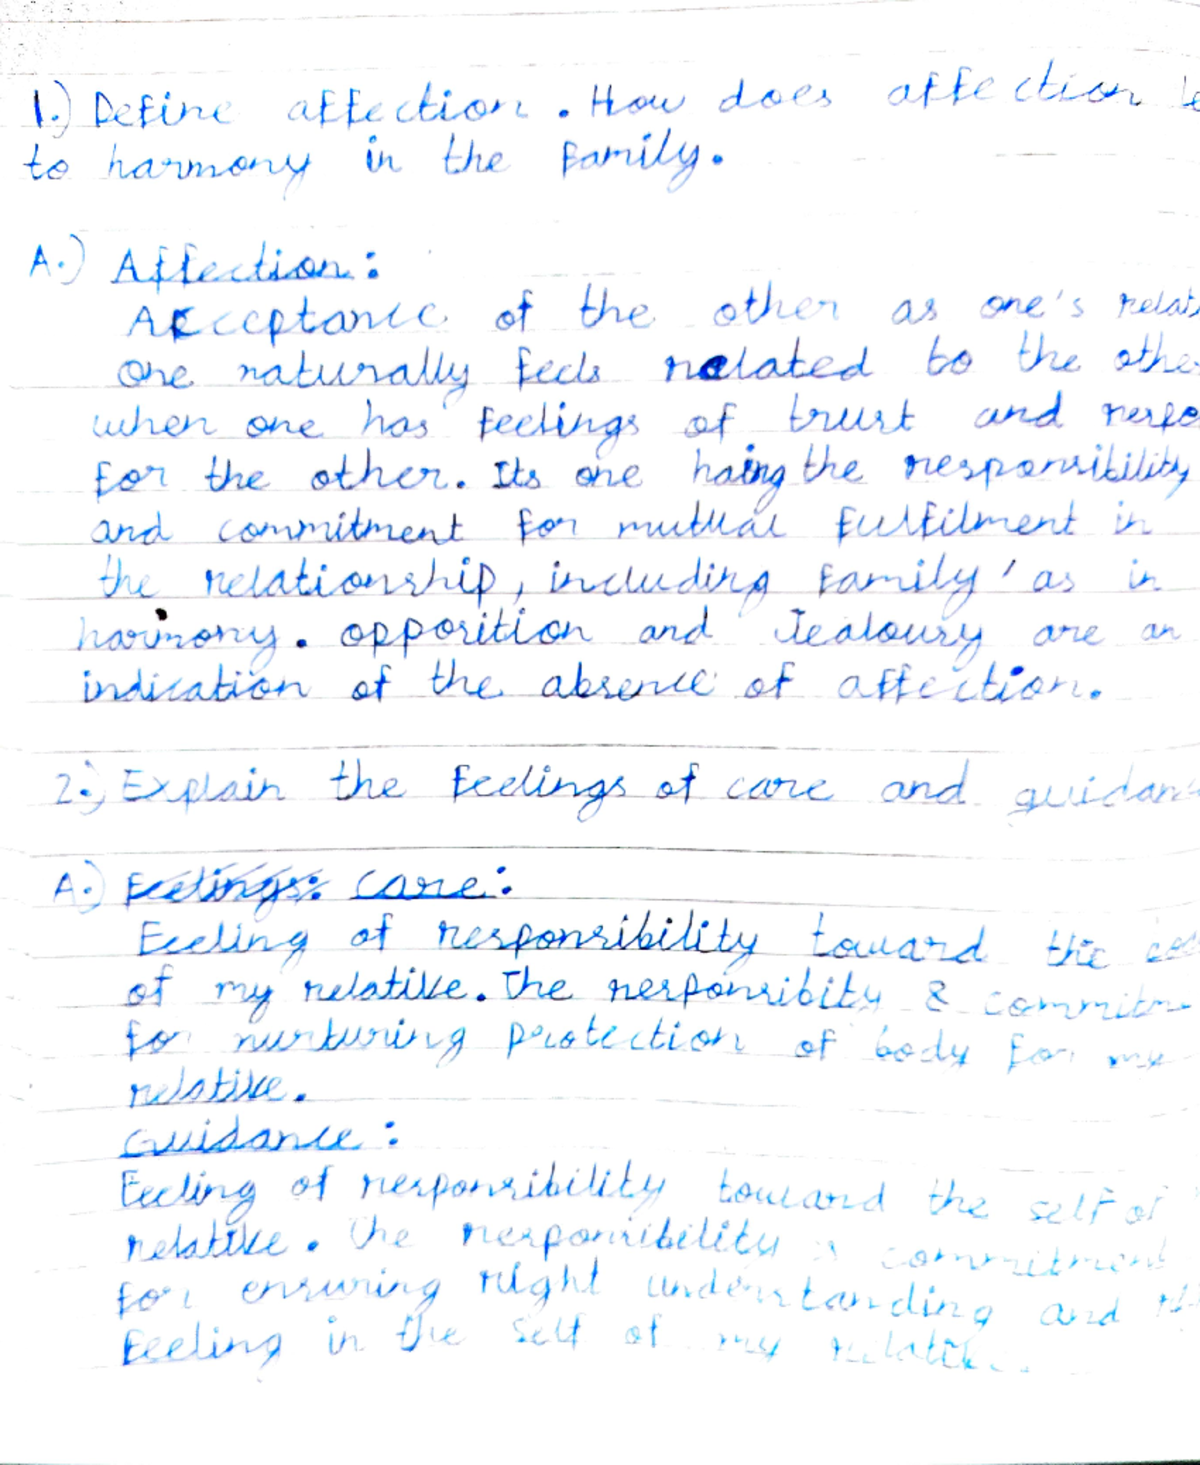 1.) Define affection. How does affection le
to harmony in the family.
A.) Affection:
Acceptance of the other as one's relat
one naturally feels related to the othe
when one has feelings of trust and respe
for the other. Its one haing the responsibility
and commitment for mutual fulfilment in
the relationship, including family' as in
harmony. opposition and Jealousy are an
indication of the absence of affection.
2.) Explain the feelings of care and guidanc
A.) Feelings: care:
Feeling of responsibility toward the
of my relative. The responsibity & commitm
for nurturing protection of body for my
relative.
Guidance:
Feeling of responsibility toward the self of
relative. The responsibility & commitment
for ensuring right understanding and
feeling in the self of my relative.